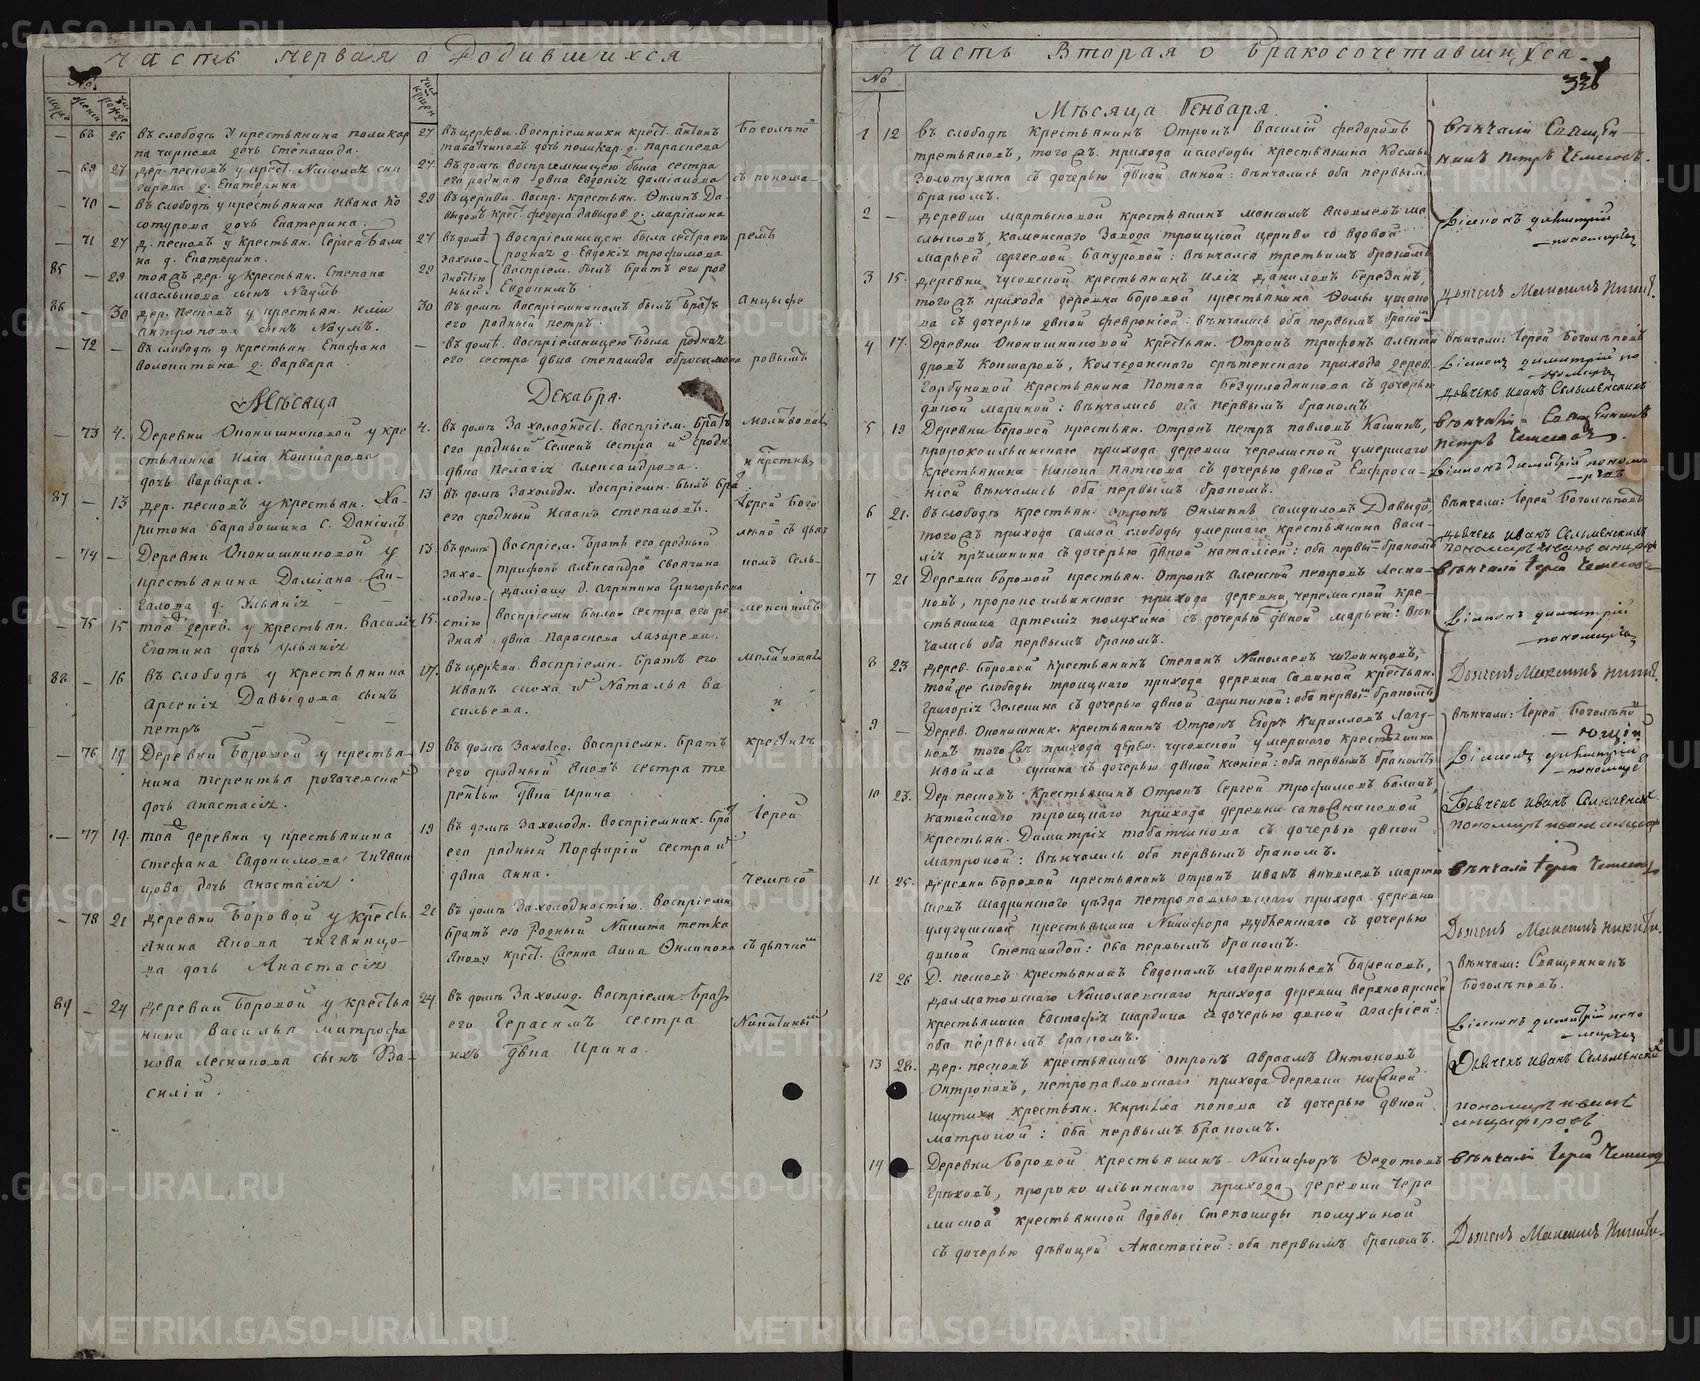 Часть первая о Родившихся
№
муж
женс
- 68 26 Въ слободѣ У крестьянина поликар
па чирнова дочь Степанида.
27 Въ церкви. Воспріемники крест. антонъ
дочь поликар. д. параскева
Боголѣпо
- 69 27 дер. песковъ у крест. Николая сни
гирева д. Екатерина
27. Въ домѣ Воспріемницею была сестра
его родная двка Евдокія даміанова
съ понома-
- 70 - Въ слободѣ у крестьянина Ивана Ко
сотурова дочь Екатерина.
29 Въ церкви. Воспр. крестьян. Филипъ Да-
выдовъ крест. федора давыдов. д. маріамна
- 71 27 д. песковъ у крестьян. Сергея Бали
на д. Екатерина.
27 Въ домѣ Воспріемницею была сестра его
захоло- родная д. Евдокія трофимова
ремъ
85 - 29 тояжъ дер. у крестьян. Степана
маслыкова сынъ Наумъ
29 дностію Воспріем. былъ братъ его род
ный Евдокимъ
86 - 30 дер. песковъ у крестьян. иліи
антропова сынъ Наумъ.
30 Въ домѣ Воспріемникомъ былъ братъ
его родный петръ.
анцыфе
- 72 - Въ слободѣ у крестьян. Епифана
Волокитина д. Варвара
- Въ домѣ. Воспріемницею была родная
его сестра двка степанида абросимова
ровымъ
Мѣсяца Декабря.
- 73 4. Деревни Опонишниковой у кре
стьянина Иліи Кошкарова
дочь Варвара.
4. Въ домѣ За холодност. Воспріем. братъ
его родный Семенъ сестра и сродн.
двка Пелагія Александрова.
молитвовалъ
и крстилъ
87 - 13 дер. песковъ у крестьян. Ха-
ритона барабошина с. Даніилъ
13 Въ домѣ За холодн. Воспріемн. былъ бра
его сродный Исаакъ степановъ.
Іерей Бого
лѣпо съ дьяч
- 74 - Деревни Опонишниковой у
крестьянина Даміана
д. Ульянія
13. Въ домѣ Воспріем. братъ его сродный
захо- трифонъ александро свояч
лодно- даміану д. агрипина Григорьева
комъ Сель-
- 75 15. тоя дерев. у крестьян. Василія
Еготина дочь ульянія
15. стію Воспріемн. была сестра его ро
дная двка Параскева Лазарева.
менскимъ
88 - 16 Въ слободѣ у крестьянина
Арсенія Давыдова сынъ
петръ
17. Въ церкви. Воспріемн. братъ его
Иванъ сноха Наталья ва
сильева.
молитвовалъ
и
- 76 19 Деревни Боровой у крестья-
нина терентья рогачевска
дочь анастасія.
19 Въ домѣ За холод. Воспріемн. братъ
его сродный Яковъ сестра те
рентію двка Ирина
крестилъ
- 77 19. тоя деревни у крестьянина
стефана Евдокимова чигвин
цова дочь анастасія.
19 Въ домѣ За холодн. Воспріемник. бра
его родный Порфирій сестра
двка анна.
Іерей
Чемесо
- 78 21 деревни Боровой у кресть
янина Якова чигвинцо-
ва дочь Анастасія
21 Въ домѣ За холодностію. Воспріемн.
братъ его Родный Никита тетка
Якову крест. Анна Филипова
съ дьячко
89 - 24 деревни Боровой у крестья
нина Василья митрофа
нова Лескинова сынъ Ва-
силій.
24. Въ домѣ За холод. Воспріемн. братъ
его Герасимъ сестра
ихъ двка Ирина.
Никитины
Часть Вторая о Бракосочетавшихся.
336
№
Мѣсяца Генваря
1 12 Въ слободѣ Крестьянинъ Отрокъ Василій федоровъ
третьяковъ, того ж. прихода и слободы крестьянина Космы
Золотухина съ дочерью двкой анной: вѣнчались оба первымъ
бракомъ.
Вѣнчали Священ-
никъ петръ Чемесовъ.
2 - деревни мартыновой крестьянинъ максимъ Яковлевъ ма
слыковъ, каменскаго Завода троицкой церкви со вдовой
Марьей сергеевой Бакуровой: Вѣнчался третьимъ бракомъ
Діаконъ димитрій
пономаревъ
3 15. деревни чусовской крестьянинъ Илія даниловъ березинъ,
тогожъ прихода деревни боровой крестьянина Фомы ушако
ва съ дочерью двкой февроніей: вѣнчались оба первымъ брако
дьячекъ Максимъ Никит.
4 17. Деревни Опонишниковой крестьян. Отрокъ трифонъ алексан
дровъ Кошкаровъ, Колчеданскаго срѣтенскаго прихода дерев.
Горбуновой крестьянина Потапа безукладникова съ дочерью
двкой мариной: вѣнчались оба первымъ бракомъ
вѣнчали: Іерей Боголѣповъ
Діаконъ димитрій по
номаревъ
дьячекъ иванъ Сельменскихъ
5 19 Деревни боровой крестьян. Отрокъ петръ павловъ Кашинъ,
пророкоильинскаго прихода деревни черемиской умершаго
крестьянина Никона пяткова съ дочерью двкой Евфроси-
ніей вѣнчались оба первымъ бракомъ.
Вѣнчали Священникъ
петръ Чемесовъ.
Діаконъ димитрій понома
ревъ
6 21. Въ слободѣ крестьян. отрокъ Филиппъ самуиловъ Давыдо
тогожъ прихода самой слободы умершаго крестьянина Васи-
лія прѣмикина съ дочерью двкой наталіей: оба первы бракомъ
вѣнчали: Іерей Боголѣповъ
дьячекъ иванъ Сельменскихъ
пономарь иванъ анцыф
7 21 Деревни Боровой крестьян. Отрокъ алексѣй петровъ Леска-
новъ, пророкоильинскаго прихода деревни черемиской кре-
стьянина Артемія полухина съ дочерью двкой марьей: вѣн
чались оба первымъ бракомъ.
Вѣнчали Іерей Чемесовъ
Діаконъ димитрій
пономаревъ
8 23 дерев. Боровой крестьянинъ Степанъ Николаевъ чигвинцовъ,
той же слободы троицкаго прихода деревни крестьян.
Григорія Зеленина съ дочерью двкой агрипиной: оба первы бракомъ
Дьячекъ Максимъ Никит.
9 - Дерев. Опонишник. крестьянинъ Отрокъ Егоръ Кириловъ Лагу-
новъ тогожъ прихода дерев. чусовской умершаго крестьянина
сунина съ дочерью двкой ксеніей: оба первымъ бракомъ
вѣнчали: Іерей Боголѣпо
Діаконъ димитрій
пономаре
10 23. Дер. песковъ Крестьянинъ Отрокъ Сергей трофимовъ Балинъ,
катайскаго троицкаго прихода деревни
крестьян. Димитрія табатчикова съ дочерью двкой
матроной: вѣнчались оба первымъ бракомъ.
Дьячекъ иванъ Сельменск.
пономарь иванъ анцыф
11 25. деревни Боровой крестьянинъ отрокъ иванъ март
шадринскаго уѣзда петропавловскаго прихода деревни
крестьянина Никифора съ дочерью
двкой степанидой: оба первымъ бракомъ.
Вѣнчали Іерей Чемесовъ
Дьячекъ Максимъ Никити.
12 26 Д. песковъ крестьянинъ Евдокимъ лаврентьевъ
далматовскаго Николаевскаго прихода деревни
крестьянина Евстафія шардина съ дочерью двкой агафіей:
оба первымъ бракомъ.
Вѣнчали: Священникъ
Боголѣповъ.
Діаконъ димитрій поно
маревъ
13 28. дер. песковъ крестьянинъ отрокъ авраамъ Антоновъ
Онтроповъ, петропавловскаго прихода деревни нижней
крестьян. Кирила попова съ дочерью двкой
матроной: оба первымъ бракомъ.
Дьячекъ иванъ Сельменски
пономарь иванъ
анцыферовъ
14 - Деревни Боровой крестьянинъ Никифоръ Федотовъ
Грѣховъ, пророко ильинскаго прихода деревни чере
миской крестьянской вдовы степаниды полухиной
съ дочерью дѣвицей Анастасіей: оба первымъ бракомъ.
Вѣнчали Іерей Чемесов
Дьячекъ Максимъ Никити.
METRIKI.GASO-URAL.RU